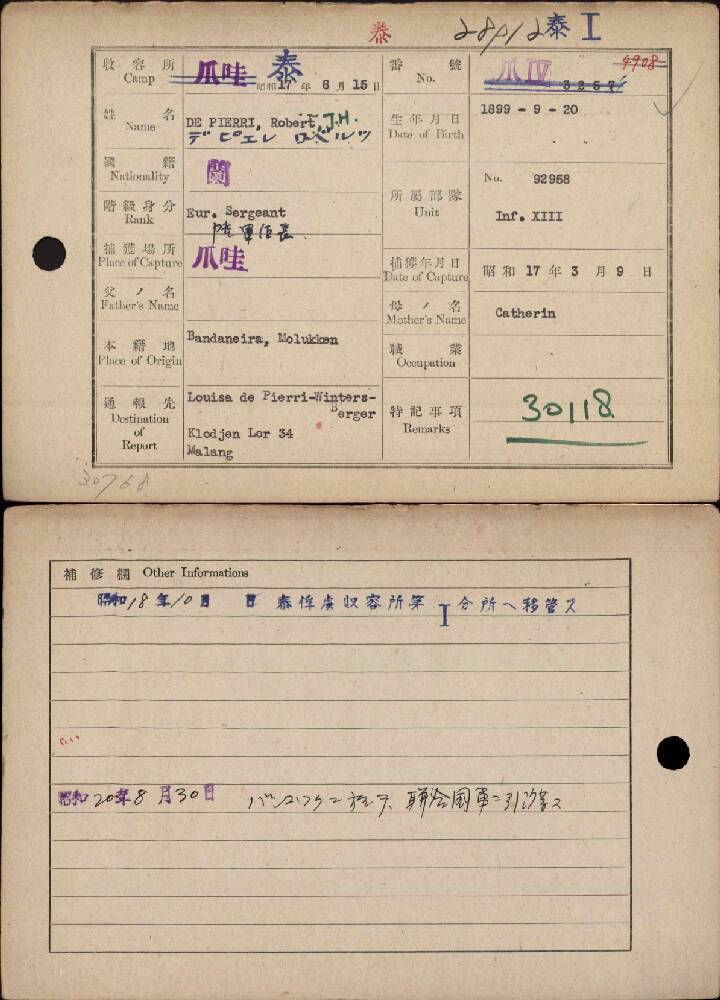 泰 泰 I
收容所 Camp 爪哇 泰 昭和17年8月15日
番號 No. 爪 IV 3257 4908
姓名 Name DE PIERRI, Robert, J.H.
デ ピエレ ロベルツ
生年月日 Date of Birth 1899 - 9 - 20
國籍 Nationality 蘭
階級身分 Rank Eur. Sergeant
所屬部隊 Unit No. 92958
Inf. XIII
捕獲場所 Place of Capture 爪哇
捕獲年月日 Date of Capture 昭和 17 年 3 月 9 日
父ノ名 Father's Name
母ノ名 Mother's Name Catherin
本籍地 Place of Origin Bandaneira, Molukken
職業 Occupation
通報先 Destination of Report Louisa de Pierri-Winters-
Berger
Klodjen Lor 34
Malang
特記事項 Remarks 30118.
30768
補修欄 Other Informations
昭和18年10月 日 泰俘虜収容所第 I 分所ヘ移管ス
昭和20年8月30日 バンコクニ於テ 聯合國軍ニ引渡ス